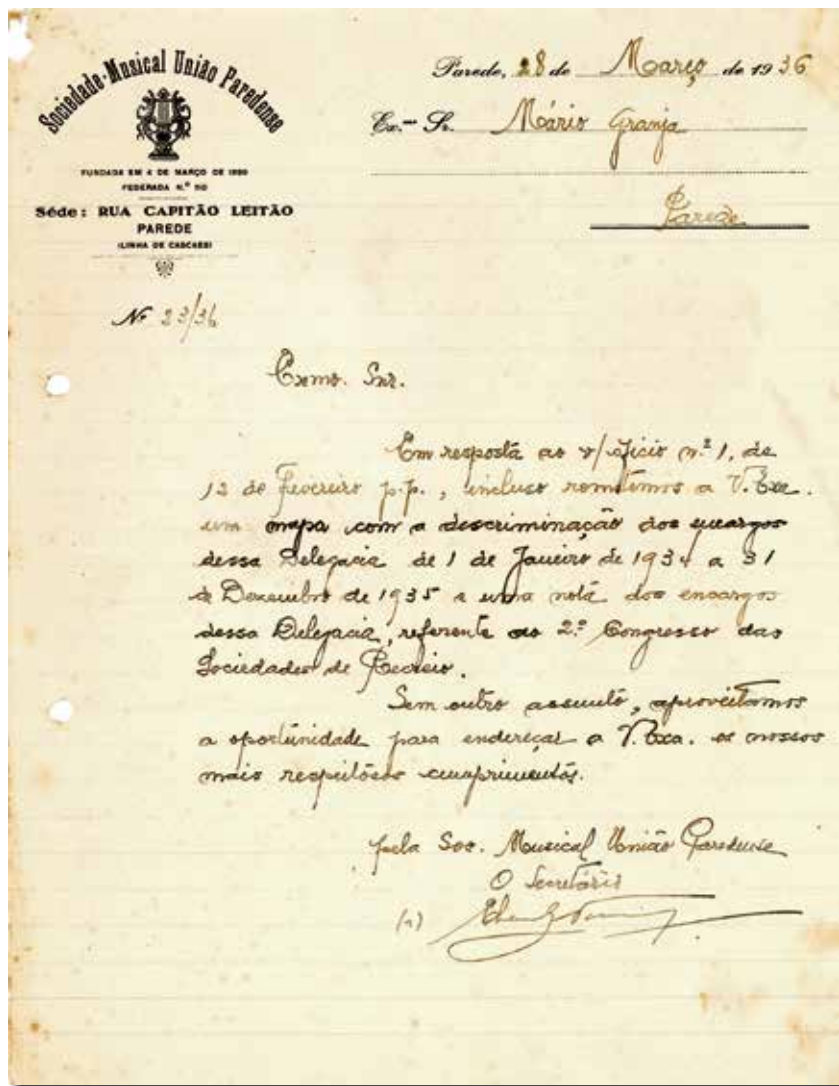 Sociedade-Musical União Paredense
FUNDADA EM 4 DE MARÇO DE 1899
FEDERADA N.º 110
Séde: RUA CAPITÃO LEITÃO
PAREDE
(LINHA DE CASCAES)
Parede, 28 de Março de 1936
Ex.mo Sr. Mário Granja
Parede
Nº 23/36
Exmo. Snr.
Em resposta ao v/ofício n.º 1, de
12 de Fevereiro p.p., incluso remetemos a V. Exa.
um mapa com a discriminação dos encargos
dessa Delegacia de 1 de Janeiro de 1934 a 31
de Dezembro de 1935 e uma nota dos encargos
dessa Delegacia, referente ao 2.º Congresso das
Sociedades de Recreio.
Sem outro assunto, aproveitamos
a oportunidade para endereçar a V. Exa. os nossos
mais respeitosos cumprimentos.
pela Soc. Musical União Paredense
O Secretário
(a)